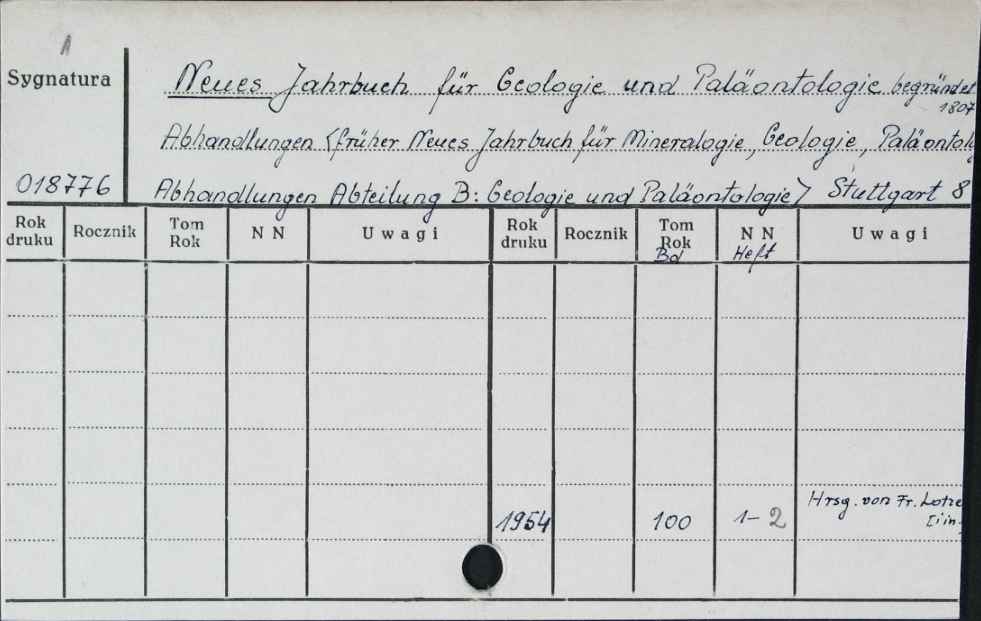 1
Sygnatura
Neues Jahrbuch für Geologie und Paläontologie begründet
1807
Abhandlungen <früher Neues Jahrbuch für Mineralogie, Geologie, Paläontol
018776
Abhandlungen Abteilung B: Geologie und Paläontologie> Stuttgart 8
Rok druku Rocznik Tom Rok N N Uwagi Rok druku Rocznik Tom Rok N N Uwagi
Bd Heft
Hrsg. von Fr. Lotze
1954 100 1-2 [i in.